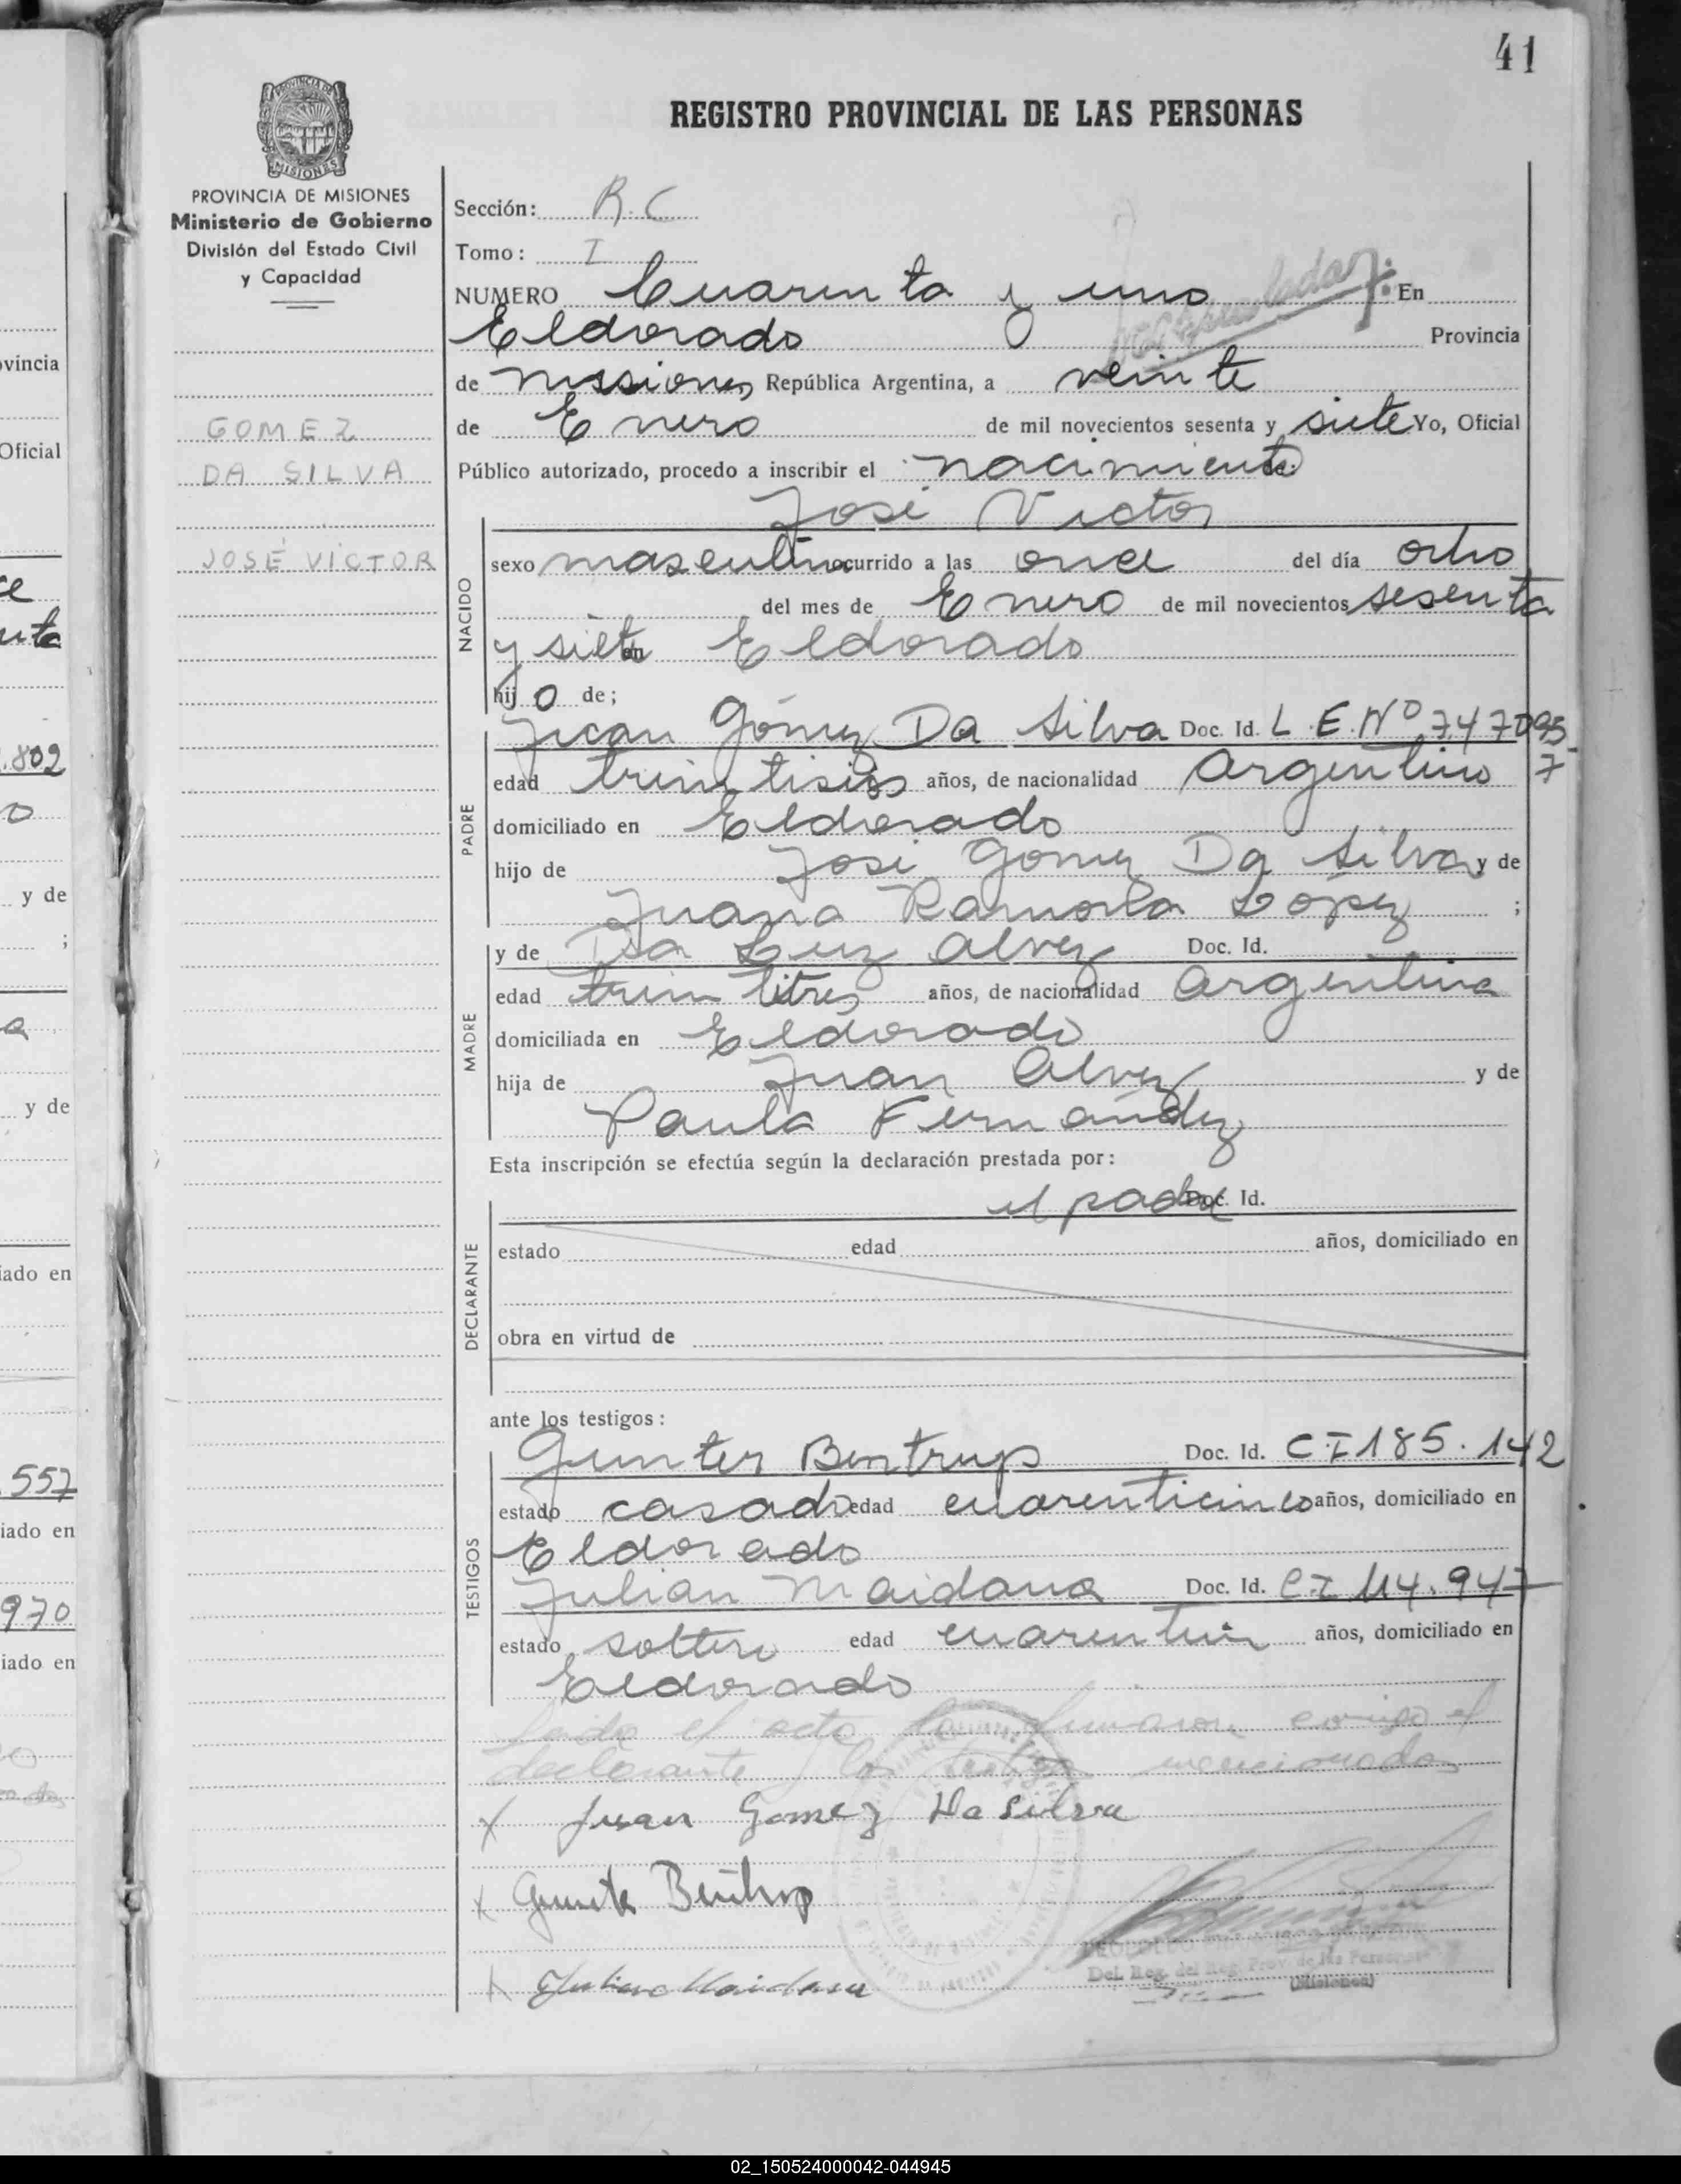 41
REGISTRO PROVINCIAL DE LAS PERSONAS
PROVINCIA DE MISIONES
Ministerio de Gobierno
División del Estado Civil
y Capacidad
GOMEZ
DA SILVA
JOSÉ VICTOR
Sección: R.C
Tomo: I
NUMERO Cuarenta y uno En
Eldorado Provincia
de Misiones República Argentina, a veinte
de Enero de mil novecientos sesenta y siete Yo, Oficial
Público autorizado, procedo a inscribir el nacimiento de:
José Victor
NACIDO
sexo masculino ocurrido a las once del día ocho
del mes de Enero de mil novecientos sesenta
y siete en Eldorado
hijo de;
PADRE
Juan Gómez Da Silva Doc. Id. L.E.Nº 7.47095
7
edad años, de nacionalidad Argentino
domiciliado en Eldorado
hijo de José Gomez Da Silva y de
Juana Ramona López ;
MADRE
y de Luz Alvez Doc. Id.
edad treintitres años, de nacionalidad Argentina
domiciliada en Eldorado
hija de Juan Alvez y de
Paula Fernández
Esta inscripción se efectúa según la declaración prestada por:
DECLARANTE
el padre Doc. Id.
estado edad años, domiciliado en
obra en virtud de
ante los testigos:
TESTIGOS
Gunter Bentrup Doc. Id. C I 185.142
estado casado edad cuarenticinco años, domiciliado en
Eldorado
Julian Maidana Doc. Id. C I 114.947
estado soltero edad años, domiciliado en
Eldorado
Leido el acta la firmaron conmigo el
declarante y los testigos mencionados
x Juan Gomez Da Silva
x Gunter Bentrup
x Julian Maidana
Del. Reg. del Reg. Prov. de las Personas
(Misiones)
vincia
Oficial
ce
nta
.802
o
y de
;
a
y de
iado en
557
iado en
970
iado en
02_150524000042-044945